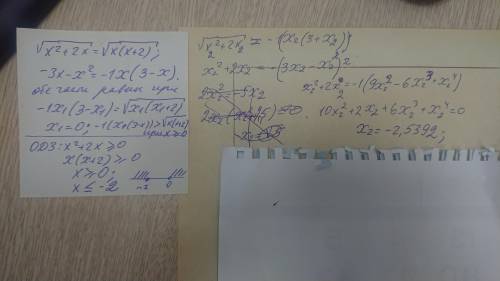 √(x²+2x) = √(x(x+2));
-3x-x² = -1x(3-x).
обе части равны при
-1x₁(3-x₁) = √(x₁(x₁+2))
x₁=0;
ОДЗ: x²+2x ≥ 0
x(x+2) ≥ 0
x ≥ 0;
x ≤ -2
-2 0
√(x₂²+2x₂) = -(x₂(3+x₂))
x₂²+2x₂ = -(3x₂-x₂)²
x₂²+2x₂ = -1(9x₂²-6x₂³+x₂⁴)
10x₂²+2x₂+6x₂³+x₂⁴=0
x₂=-2,5392;